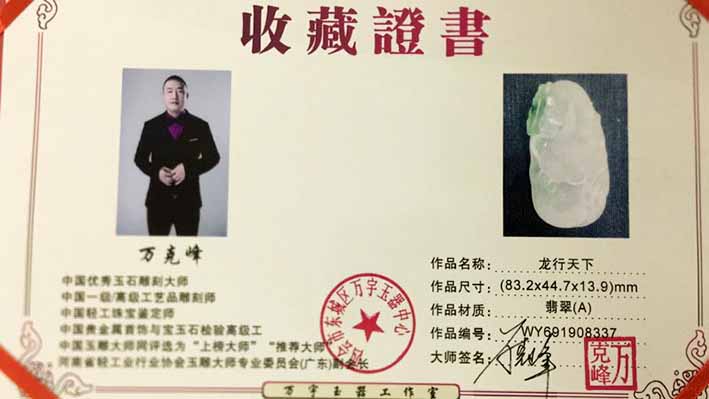 收藏證書
万克峰
中国优秀玉石雕刻大师
中国一级/高级工艺品雕刻师
中国轻工珠宝鉴定师
中国贵金属首饰与宝玉石检验高级工
中国玉雕大师网评选为“上榜大师”“推荐大师”
河南省轻工业行业协会玉雕大师专业委员会(广东)副会长
四会市东城区万宇玉器中心
作品名称: 龙行天下
作品尺寸: (83.2x44.7x13.9)mm
作品材质: 翡翠(A)
作品编号: WY691908337
大师签名: 万克峰
万克峰
万宇玉器工作室